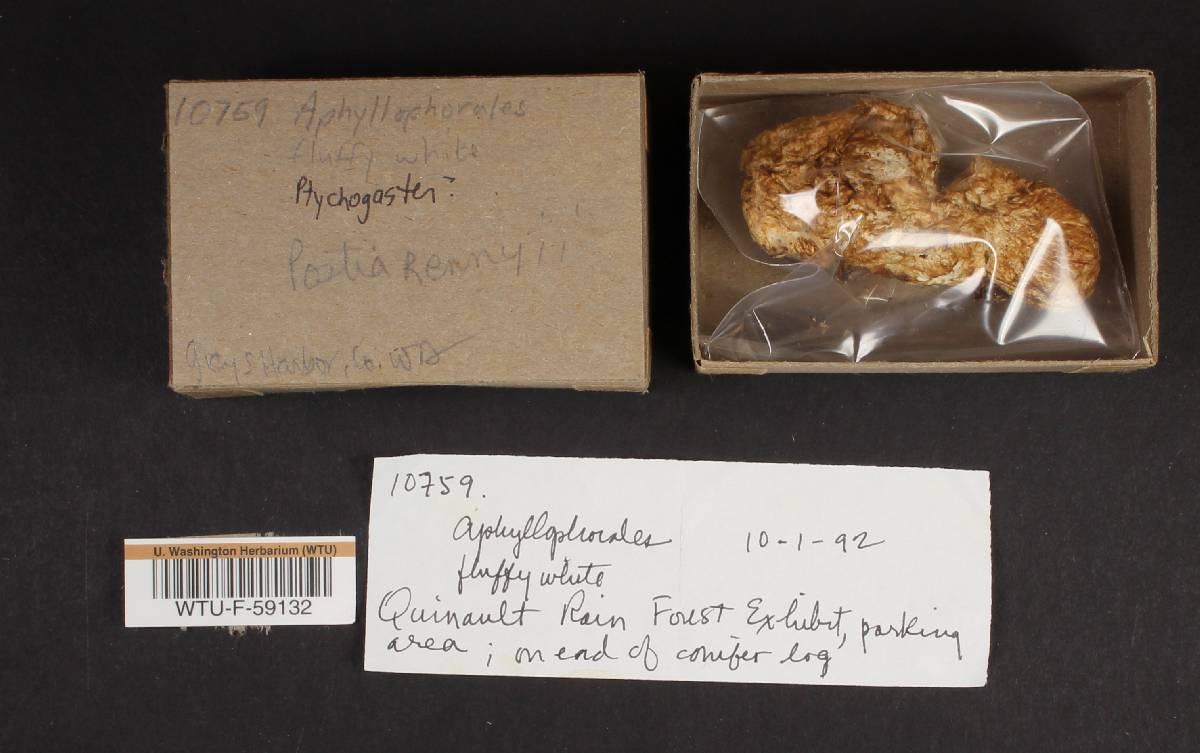 10759 Aphyllophorales
fluffy white
Ptychogaster?
Postia Rennyii
Grays Harbor, Co. WA
10759.
Aphyllophorales 10-1-92
fluffy white
Quinault Rain Forest Exhibit, parking
area; on end of conifer log
U. Washington Herbarium (WTU)
WTU-F-59132